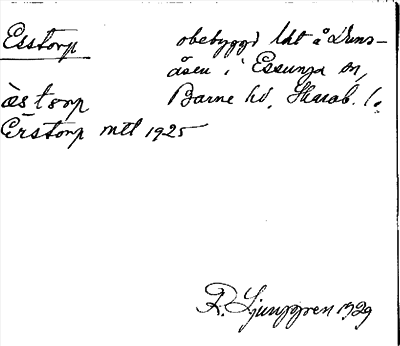 Esstorp
obebyggd lht å Duns-
åsen i Essunga sn,
Barne hd, Skarab. l.
ästorp
Erstorp mtl 1925
R. Ljunggren 1929